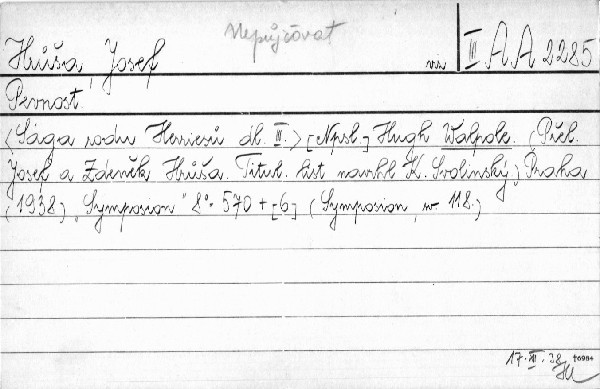 Nepůjčovat
Hůša, Josef viz III A A 2285
Pevnost.
(Sága rodu Herriesů díl III.) [Napsl.] Hugh Walpole. (Přel.
Josef a Zdeněk Hůša. Titul. list navrhl K. Svolinský.) Praha
(1938), "Symposion" 8°. 570 + [6] (Symposion, sv. 118.)
17. XI. 38.